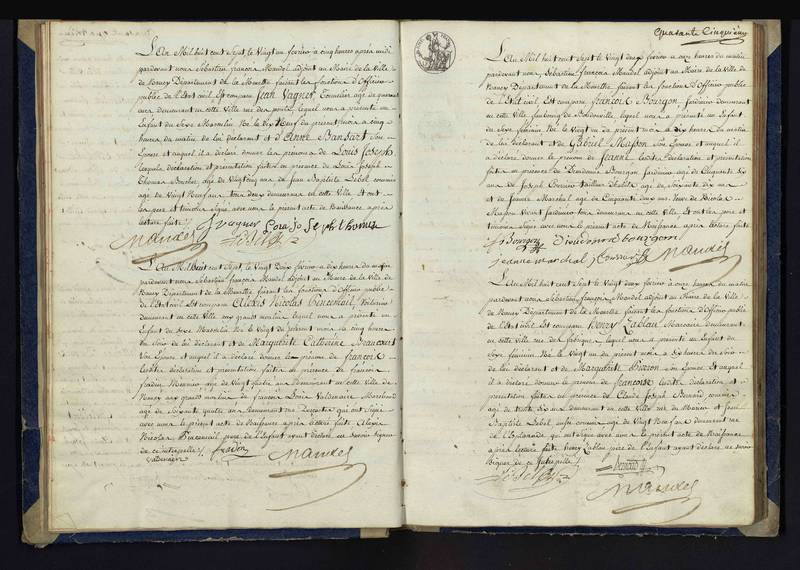 L'An Mil huit cent Sept, le Vingt un fevrier a cinq heures après midi
pardevant nous Sébastien françois Mandel adjoint au Maire de la Ville
de Nancy Département de la Meurthe faisant les fonctions d'Officier
public de l'Etat civil Est comparu Jean Vagner Tonnelier age de quarante
ans demeurant en cette Ville rue des ponts, lequel nous a présenté un
Enfant du Sexe Masculin Né le dix Neuf du présent mois a cinq
heures du matin de lui déclarant et d'Anne Bansart Son
Epouse et auquel il a déclaré donner les prénoms de Louis Joseph
lesquels déclaration et présentation faites en présence de Louis Joseph
Thomas age de Vingt cinq ans de Jean Baptiste Lebel commis
age de Vingt Neuf ans tous deux demeurans en cette Ville Et ont
les père et témoins Signé avec nous le présent acte de Naissance après
lecture faite
J Vagner Louis joseph thomas
Mandel
L'An Mil huit cent Sept, le Vingt Deux fevrier a dix heures du matin
pardevant nous Sébastien françois Mandel adjoint au Maire de la Ville de
Nancy Département de la Meurthe faisant les fonctions d'Officier public
de l'Etat civil Est comparu Alexis Nicolas Pincemail, Voiturier
demeurant en cette Ville aux grands moulins lequel nous a présenté un
Enfant du Sexe Masculin Né le Vingt du présent mois a cinq heures
du Soir de lui déclarant et de Marguerite Catherine Beaucourt
Son Epouse et auquel il a déclaré donner le prénom de francois
lesdites déclaration et présentation faites en présence de francois
fradin Meunier age de Vingt quatre ans demeurant en cette Ville de
Nancy aux grands moulins de francois Louis Valdenaire Marchand
age de Soixante quatre ans demeurant qui ont Signé
avec nous le présent acte de Naissance après lecture faite Alexis
Nicolas Pincemail père de l'Enfant ayant déclaré ne Savoir Signer
de ce interpellé
fradin
Mandel
Quarante Cinquième
L'An Mil huit cent Sept le Vingt deux fevrier a onze heures du matin
pardevant nous, Sébastien francois Mandel adjoint au Maire de la Ville de
Nancy Département de la Meurthe faisant les fonctions d'Officier public
de l'Etat civil Est comparu francois Bourgon, Jardinier demeurant
en cette Ville faubourg de lequel nous a présenté un Enfant
du Sexe féminin Né le Vingt un du présent mois a dix heures du matin
de lui déclarant et de Gabriel Masson Son Epouse et auquel il
a déclaré donner le prénom de Jeanne lesdites déclaration et présentation
faites en présence de Dieudonné Bourgon Jardinier age de Cinquante Six
ans de Joseph tailleur d'habits age de Soixante dix ans
et de Jeanne Marchal age de Cinquante deux ans Veuve de Nicolas
Masson Vivant Jardinier tous demeurans en cette Ville, et ont les père et
témoins Signé avec nous le présent acte de Naissance après lecture faite
f Bourgon Dieudonné bourgon
jeanne marchal
Mandel
L'An Mil huit cent Sept le Vingt deux fevrier a onze heures du matin
pardevant nous Sébastien, françois Mandel adjoint au Maire de la Ville
de Nancy Département de la Meurthe faisant les fonctions d'Officier public
de l'Etat civil Est comparu Henry Lablau Marcaire demeurant
en cette Ville rue lequel nous a présenté un Enfant du
Sexe féminin Né le Vingt un du présent mois a dix heures du Soir
de lui déclarant et de Marguerite Pierron Son Epouse Et auquel
il a déclaré donner le prénom de francoise lesdites déclaration et
présentation faites en présence de Claude Joseph Benoist commis
age de trente Six ans demeurant en cette Ville rue de et Jean
Baptiste Lebel aussi commis age de Vingt Neuf ans demeurant rue
de l'Esplanade qui ont Signé avec nous le présent acte de Naissance
après lecture faite henry Lablau père de l'Enfant ayant déclaré ne Savoir
Signer de ce Interpellé
benoist
Mandel